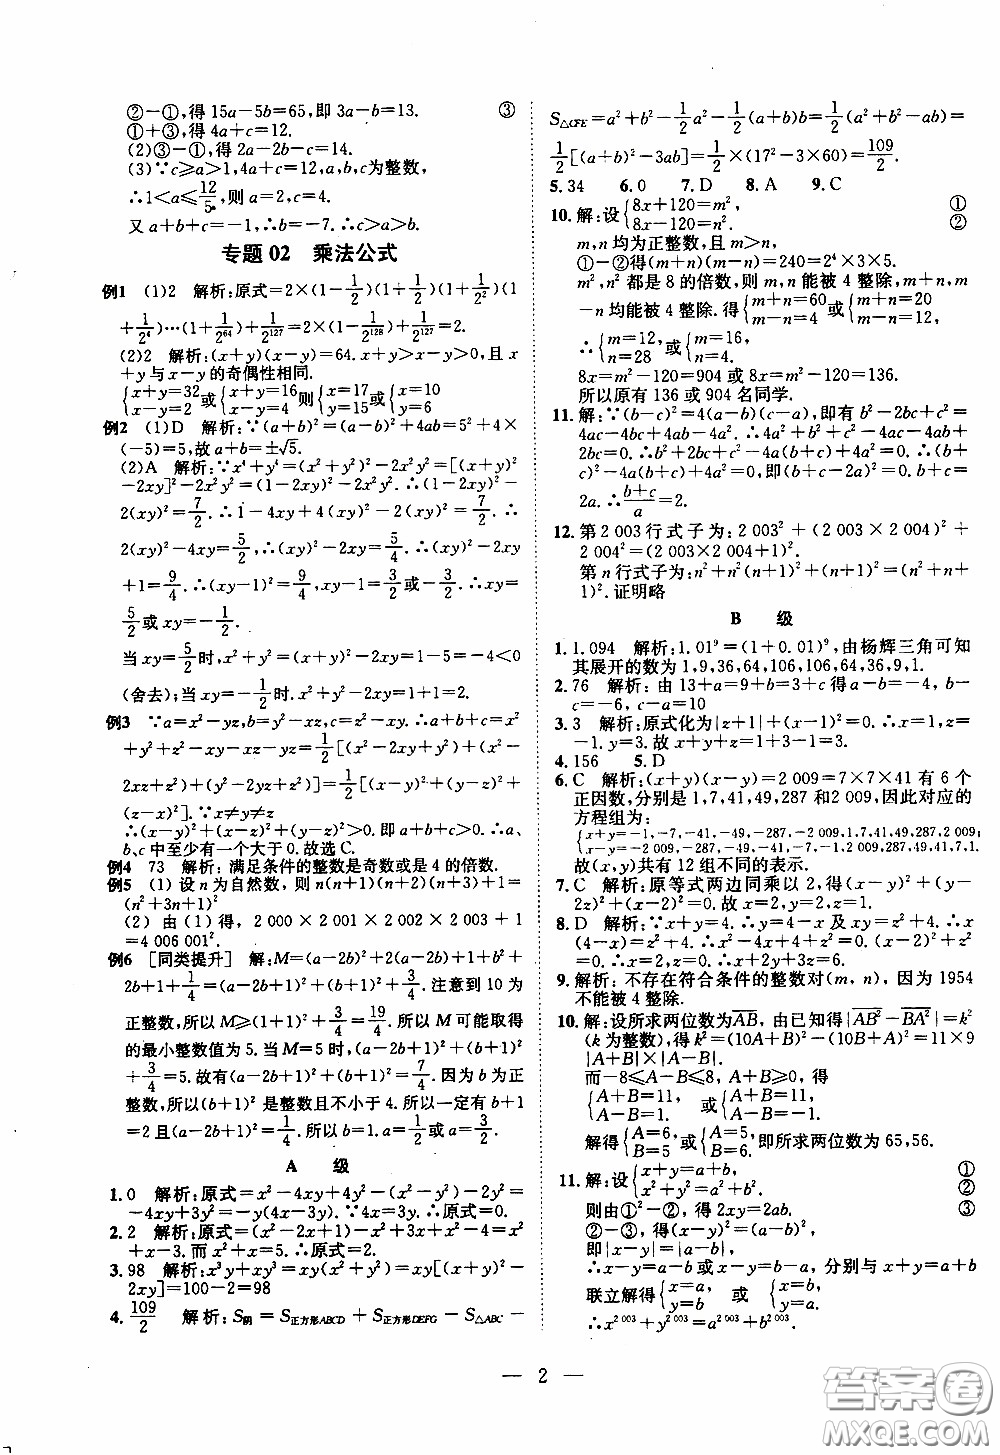 ②−①,得 15a−5b=65,即 3a−b=13. ③
①+③,得 4a+c=12.
(2)③−①,得 2a−2b−c=14.
(3)∵c⩾a>1,4a+c=12,a,b,c为整数,
∴1<a⩽12/5,则 a=2,c=4.
又 a+b+c=−1,∴b=−7.∴c>a>b.
专题 02 乘法公式
例1 (1)2 解析:原式=2×(1−1/2)(1+1/2)(1+1/2²)(1
+1/2⁴)…(1+1/2⁶⁴)+1/2¹²⁷=2×(1−1/2¹²⁸)+1/2¹²⁷=2.
(2)2 解析:(x+y)(x−y)=64.x+y>x−y>0,且 x
+y 与 x−y 的奇偶性相同.
{x+y=32 x−y=2 或{x+y=16 x−y=4 则{x=17 y=15 或{x=10 y=6
例2 (1)D 解析:∵(a+b)²=(a−b)²+4ab=5²+4×
(−5)=5,故 a+b=±√5.
(2)A 解析:∵x⁴+y⁴=(x²+y²)²−2x²y²=[(x+y)²
−2xy]²−2x²y²=(1−2xy)²−2x²y².∴(1−2xy)²−
2(xy)²=7/2.∴1−4xy+4(xy)²−2(xy)²=7/2.∴
2(xy)²−4xy=5/2,∴(xy)²−2xy=5/4.∴(xy)²−2xy
+1=9/4.∴(xy−1)²=9/4,xy−1=3/2或−3/2.∴xy=
5/2或 xy=−1/2.
当 xy=5/2时,x²+y²=(x+y)²−2xy=1−5=−4<0
(舍去);当 xy=−1/2时.x²+y²=(x+y)²−2xy=1+1=2.
例3 ∵a=x²−yz,b=y²−xz,c=z²−xy.∴a+b+c=x²
+y²+z²−xy−xz−yz=1/2[(x²−2xy+y²)+(x²−
2xz+z²)+(y²−2yz+z²)]=1/2[(x−y)²+(y−z)²+
(z−x)²].∵x≠y≠z
∴(x−y)²+(y−z)²+(z−x)²>0.即 a+b+c>0.∴a、
b、c 中至少有一个大于 0.故选 C.
例4 73 解析:满足条件的整数是奇数或是 4 的倍数.
例5 (1)设 n 为自然数,则 n(n+1)(n+2)(n+3)+1=
(n²+3n+1)²
(2)由(1)得,2 000×2 001×2 002×2 003+1
=4 006 001².
例6 [同类提升] 解:M=(a−2b)²+2(a−2b)+1+b²+
2b+1+1/4=(a−2b+1)²+(b+1)²+3/4.注意到 10 为
正整数,所以 M⩾(1+1)²+3/4=19/4.所以 M 可能取得
的最小整数值为 5.当 M=5 时,(a−2b+1)²+(b+1)²
+3/4=5.故有(a−2b+1)²+(b+1)²=17/4.因为 b 为正
整数,所以(b+1)²是整数且不小于 4.所以一定有 b+1
=2 且(a−2b+1)²=1/4.所以 b=1.a=1/2或 a=3/2.
A 级
1.0 解析:原式=x²−4xy+4y²−(x²−y²)−2y²=
−4xy+3y²=−y(4x−3y).∵4x=3y.∴原式=0.
2.2 解析:原式=(x²−2x+1)−x²+3x+x²−4=x²
+x−3.而 x²+x=5.∴原式=2.
3.98 解析:x³y+xy³=xy(x²+y²)=xy[(x+y)²−
2xy]=100−2=98
4.109/2 解析:S阴=S正方形ABCD+S正方形DEFG−S△ABC−
S△CFE=a²+b²−1/2a²−1/2(a+b)b=1/2(a²+b²−ab)=
1/2[(a+b)²−3ab]=1/2×(17²−3×60)=109/2.
5.34 6.0 7.D 8.A 9.C
10.解:设{8x+120=m², ① 8x−120=n². ②
m,n 均为正整数,且 m>n.
①−②得(m+n)(m−n)=240=2⁴×3×5.
m²,n² 都是 8 的倍数,则 m,n 能被 4 整除,m+n,m
−n 均能被 4 整除.得{m+n=60 m−n=4 或{m+n=20 m−n=12
∴{m=12, n=28 或{m=16, n=4.
8x=m²−120=904 或 8x=m²−120=136.
所以原有 136 或 904 名同学.
11.解:∵(b−c)²=4(a−b)(c−a),即有 b²−2bc+c²=
4ac−4bc+4ab−4a².∴4a²+b²+c²−4ac−4ab+
2bc=0.∴b²+2bc+c²−4ab−4ac+4a²=0.∴(b+
c)²−4a(b+c)+4a²=0,即(b+c−2a)²=0.∴b+c=
2a.∴(b+c)/a=2.
12.第 2 003 行式子为:2 003²+(2 003×2 004)²+
2 004²=(2 003×2 004+1)².
第 n 行式子为:n²+n²(n+1)²+(n+1)²=(n²+n+
1)².证明略
B 级
1.1.094 解析:1.01⁹=(1+0.01)⁹,由杨辉三角可知
其展开的数为 1,9,36,64,106,106,64,36,9,1.
2.76 解析:由 13+a=9+b=3+c,a−b=−4,b−
c=−6,c−a=10
3.3 解析:原式化为|z+1|+(x−1)²=0.x=1,z=
−1.y=3.故 x+y+z=1+3−1=3.
4.156 5.D
6.C 解析:(x+y)(x−y)=2 009=7×7×41 有 6 个
正因数,分别是 1,7,41,49,287 和2 009,因此对应的
方程组为:
{x+y=−1,−7,−41,−49,−287,−2 009,1,7,41,49,287,2009; x−y=−2 009,−287,−49,−41,−7,−1,2 009,287,49,41,7,1.
故(x,y)共有 12 组不同的表示.
7.C 解析:原等式两边同乘以 2,得(x−y)²+(y−
2z)²+(x−2z)²=0.故 x=y=2z.
8.D 解析:∵x+y=4.∴y=4−x 及 xy=z²+4.∴x
(4−x)=z²+4.∴x²−4x+4+z²=0.∴(x−2)²+
z²=0.∴{x=2 z=0.∴y=2.∴x+2y+3z=6.
9.解析:不存在符合条件的整数对(m,n),因为 1954
不能被 4 整除.
10.解:设所求两位数为AB,由已知得|AB²−BA²|=k²
(k 为整数),得 k²=(10A+B)²−(10B+A)²=11×9
|A+B|×|A−B|.
而−8⩽A−B⩽8,A+B⩾3,得
{A+B=11, A−B=1. 或{A+B=11, A−B=−1.
解得{A=6, B=5 或{A=5, B=6. 即所求两位数为 65,56.
11.解:设{x+y=a+b, ① x²+y²=a²+b². ②
则由①²−②,得 2xy=2ab. ③
②−③,得(x−y)²=(a−b)²,
即|x−y|=|a−b|,
∴x−y=a−b 或 x−y=b−a,分别与 x+y=a+b
联立解得{x=a, y=b 或 {x=b, y=a.
∴x²⁰⁰³+y²⁰⁰³=a²⁰⁰³+b²⁰⁰³
— 2 —
答案圈
MXQE.COM